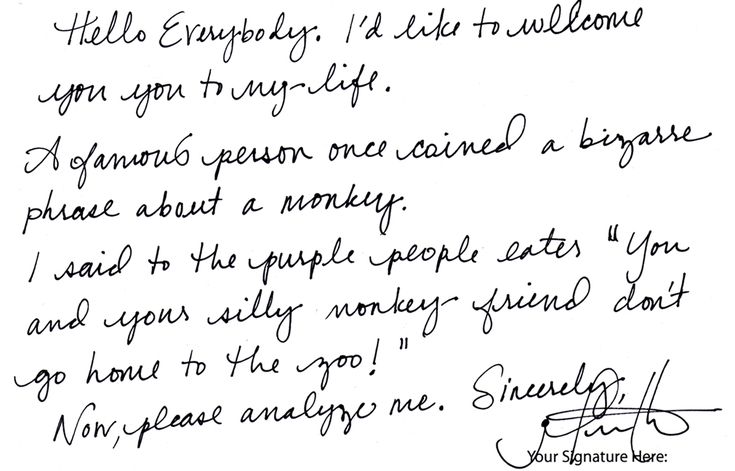 Hello Everybody. I'd like to wellcome
you you to my life.
A famous person once coined a bizarre
phrase about a monkey.
I said to the purple people eater "You
and your silly monkey friend don't
go home to the zoo!"
Now, please analyze me. Sincerely,
Your Signature Here: